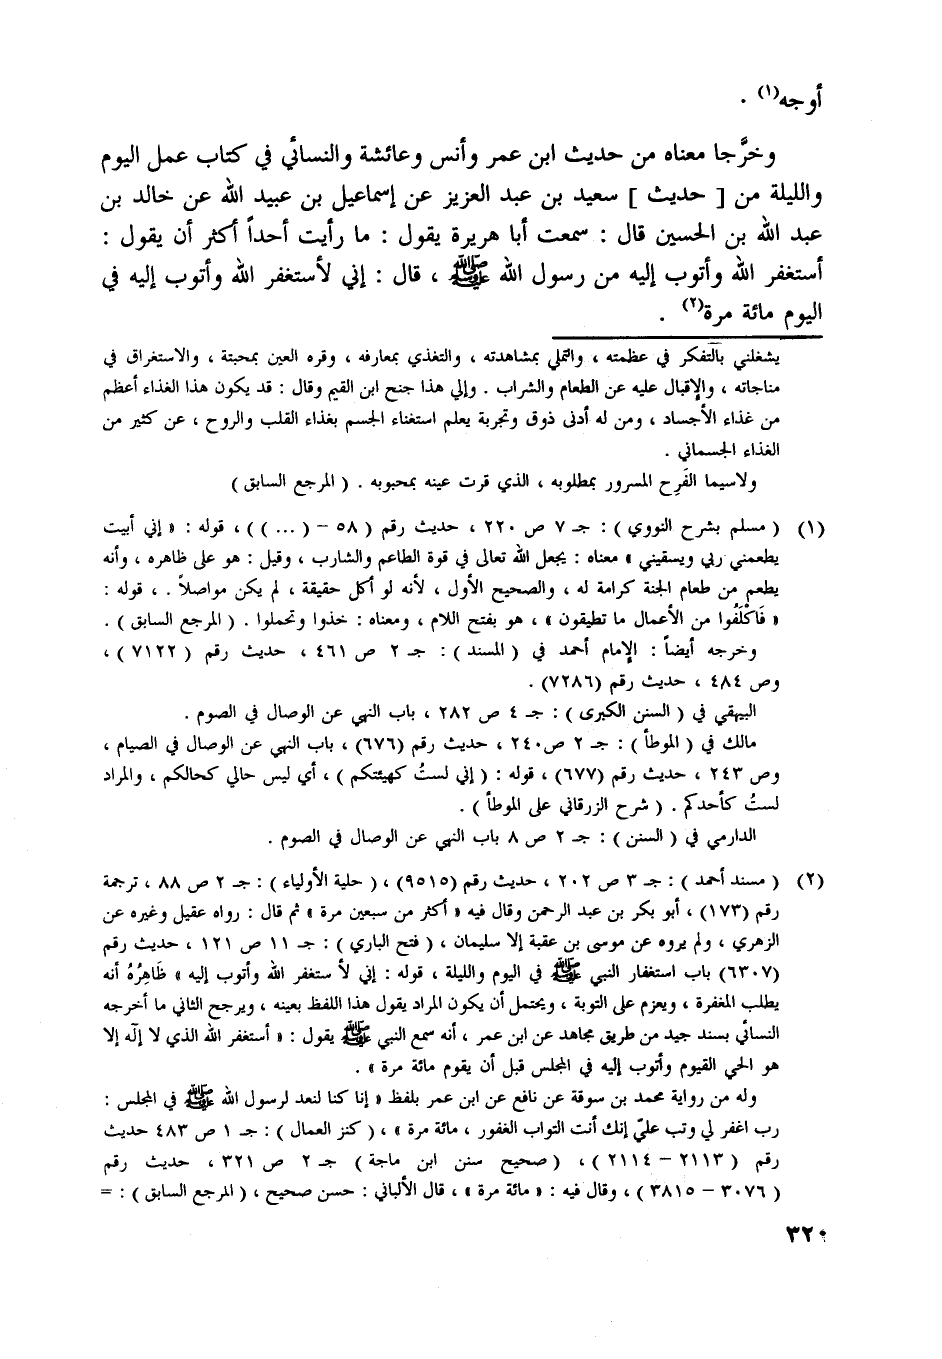 أوجه(١) .
وخرَّجا معناه من حديث ابن عمر وأنس وعائشة والنسائي في كتاب عمل اليوم
والليلة من [ حديث ] سعيد بن عبد العزيز عن إسماعيل بن عبيد الله عن خالد بن
عبد الله بن الحسين قال : سمعت أبا هريرة يقول : ما رأيت أحداً أكثر أن يقول :
أستغفر الله وأتوب إليه من رسول الله ﷺ ، قال : إني لأستغفر الله وأتوب إليه في
اليوم مائة مرة(٢) .
يشغلني بالتفكر في عظمته ، والتملي بمشاهدته ، والتغذي بمعارفه ، وقره العين بمحبتة ، والاستغراق في
مناجاته ، والإقبال عليه عن الطعام والشراب . وإلي هذا جنح ابن القيم وقال : قد يكون هذا الغذاء أعظم
من غذاء الأجساد ، ومن له أدنى ذوق وتجربة يعلم استغناء الجسم بغذاء القلب والروح ، عن كثير من
الغذاء الجسماني .
ولاسيما الفَرِح المسرور بمطلوبه ، الذي قرت عينه بمحبوبه . ( المرجع السابق )
(١) ( مسلم بشرح النووي ) : جـ ٧ ص ٢٢٠ ، حديث رقم ( ٥٨ – ( ... )) ، قوله : « إني أبيت
يطعمني ربي ويسقيني » معناه : يجعل الله تعالى في قوة الطاعم والشارب ، وقيل : هو على ظاهره ، وأنه
يطعم من طعام الجنة كرامة له ، والصحيح الأول ، لأنه لو أكل حقيقة ، لم يكن مواصلاً . ، قوله :
« فَاكْلَفُوا من الأعمال ما تطيقون » ، هو بفتح اللام ، ومعناه : خذوا وتحملوا . ( المرجع السابق ) .
وخرجه أيضاً : الإمام أحمد في ( المسند ) : جـ ٢ ص ٤٦١ ، حديث رقم ( ٧١٢٢ ) ،
وص ٤٨٤ ، حديث رقم (٧٢٨٦) .
البيهقي في ( السنن الكبرى ) : جـ ٤ ص ٢٨٢ ، باب النهي عن الوصال في الصوم .
مالك في ( الموطأ ) : جـ ٢ ص٢٤٠ ، حديث رقم (٦٧٦) ، باب النهي عن الوصال في الصيام ،
وص ٢٤٣ ، حديث رقم (٦٧٧) ، قوله : ( إني لستُ كهيئتكم ) ، أي ليس حالي كحالكم ، والمراد
لستُ كأحدكم . ( شرح الزرقاني على الموطأ ) .
الدارمي في ( السنن ) : جـ ٢ ص ٨ باب النهي عن الوصال في الصوم .
(٢) ( مسند أحمد ) : جـ ٣ ص ٢٠٢ ، حديث رقم (٩٥١٥) ، ( حلية الأولياء ) : جـ ٢ ص ٨٨ ، ترجمة
رقم (١٧٣) ، أبو بكر بن عبد الرحمن وقال فيه « أكثر من سبعين مرة » ثم قال : رواه عقيل وغيره عن
الزهري ، ولم يروه عن موسى بن عقبة إلا سليمان ، ( فتح الباري ) : جـ ١١ ص ١٢١ ، حديث رقم
(٦٣٠٧) باب استغفار النبي ﷺ في اليوم والليلة ، قوله : إني لأ ستغفر الله وأتوب إليه » ظَاهِرُهُ أنه
يطلب المغفرة ، ويعزم على التوبة ، ويحتمل أن يكون المراد يقول هذا اللفظ بعينه ، ويرجح الثاني ما أخرجه
النسائي بسند جيد من طريق مجاهد عن ابن عمر ، أنه سمع النبي ﷺ يقول : « أستغفر الله الذي لا إلٓه إلا
هو الحي القيوم وأتوب إليه في المجلس قبل أن يقوم مائة مرة » .
وله من رواية محمد بن سوقة عن نافع عن ابن عمر بلفظ « إنا كنا لنعد لرسول الله ﷺ في المجلس :
رب اغفر لي وتب عليّ إنك أنت التواب الغفور ، مائة مرة » ، ( كنز العمال ) : جـ ١ ص ٤٨٣ حديث
رقم ( ٢١١٣ – ٢١١٤ ) ، ( صحيح سنن ابن ماجة ) جـ ٢ ص ٣٢١ ، حديث رقم
( ٣٠٧٦ – ٣٨١٥ ) ، وقال فيه : « مائة مرة » ، قال الألباني : حسن صحيح ، ( المرجع السابق ) : =
٣٢٠